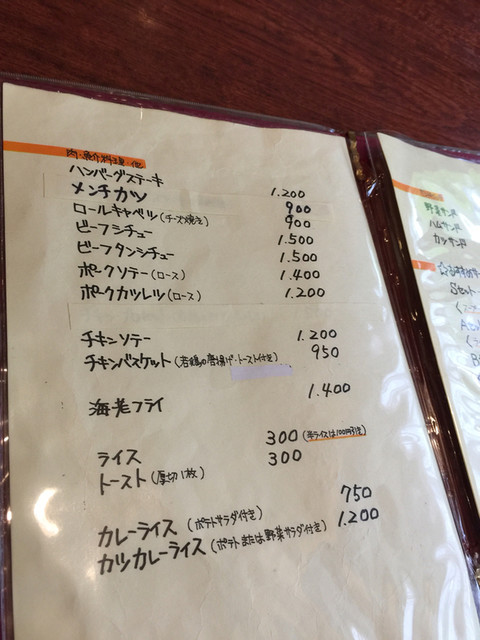 肉・魚介料理・他
ハンバーグステーキ 1.200
メンチカツ 900
ロールキャベツ(チーズ焼き) 900
ビーフシチュー 1.500
ビーフタンシチュー 1.500
ポークソテー(ロース) 1.400
ポークカツレツ(ロース) 1.200
チキンソテー 1.200
チキンバスケット(若鶏の唐揚げ・トースト付き) 950
海老フライ 1.400
ライス 300(半ライスは100円引き)
トースト(厚切1枚) 300
カレーライス(ポテトサラダ付き) 750
カツカレーライス(ポテトまたは野菜サラダ付き) 1.200
野菜サンド
ハムサンド
カツサンド
Sセット